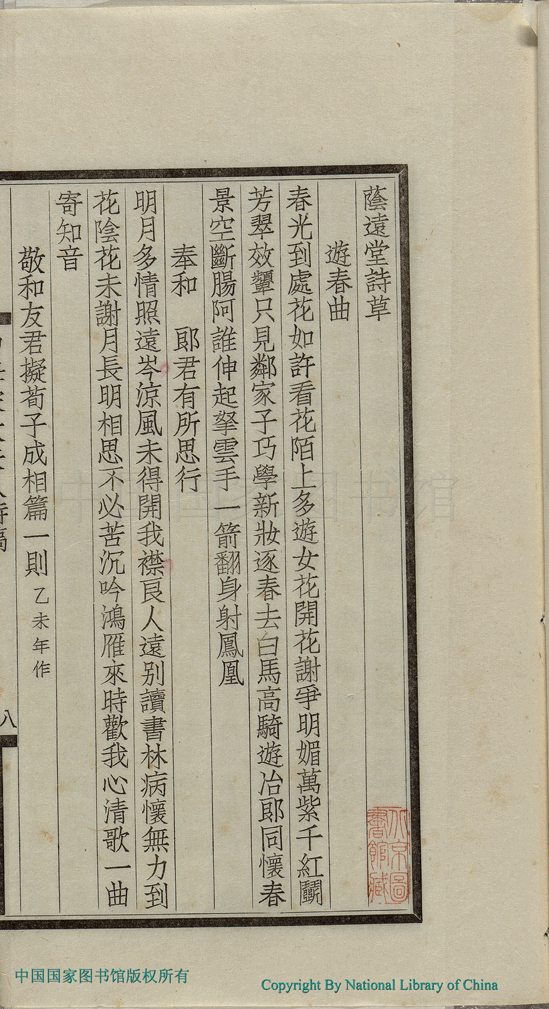 蔭遠堂詩草
遊春曲
春光到處花如許看花陌上多遊女花開花謝爭明媚萬紫千紅鬭
芳翠效顰只見鄰家子巧學新妝逐春去白馬高騎遊冶郎同懷春
景空斷腸阿誰伸起拏雲手一箭翻身射鳳凰
奉和 郎君有所思行
明月多情照遠岑涼風未得開我襟良人遠別讀書林病懷無力到
花陰花未謝月長明相思不必苦沉吟鴻雁來時歡我心清歌一曲
寄知音
敬和友君擬荀子成相篇一則 乙未年作
八
北京圖
書館藏
中国国家图书馆
中国国家图书馆版权所有
Copyright By National Library of China